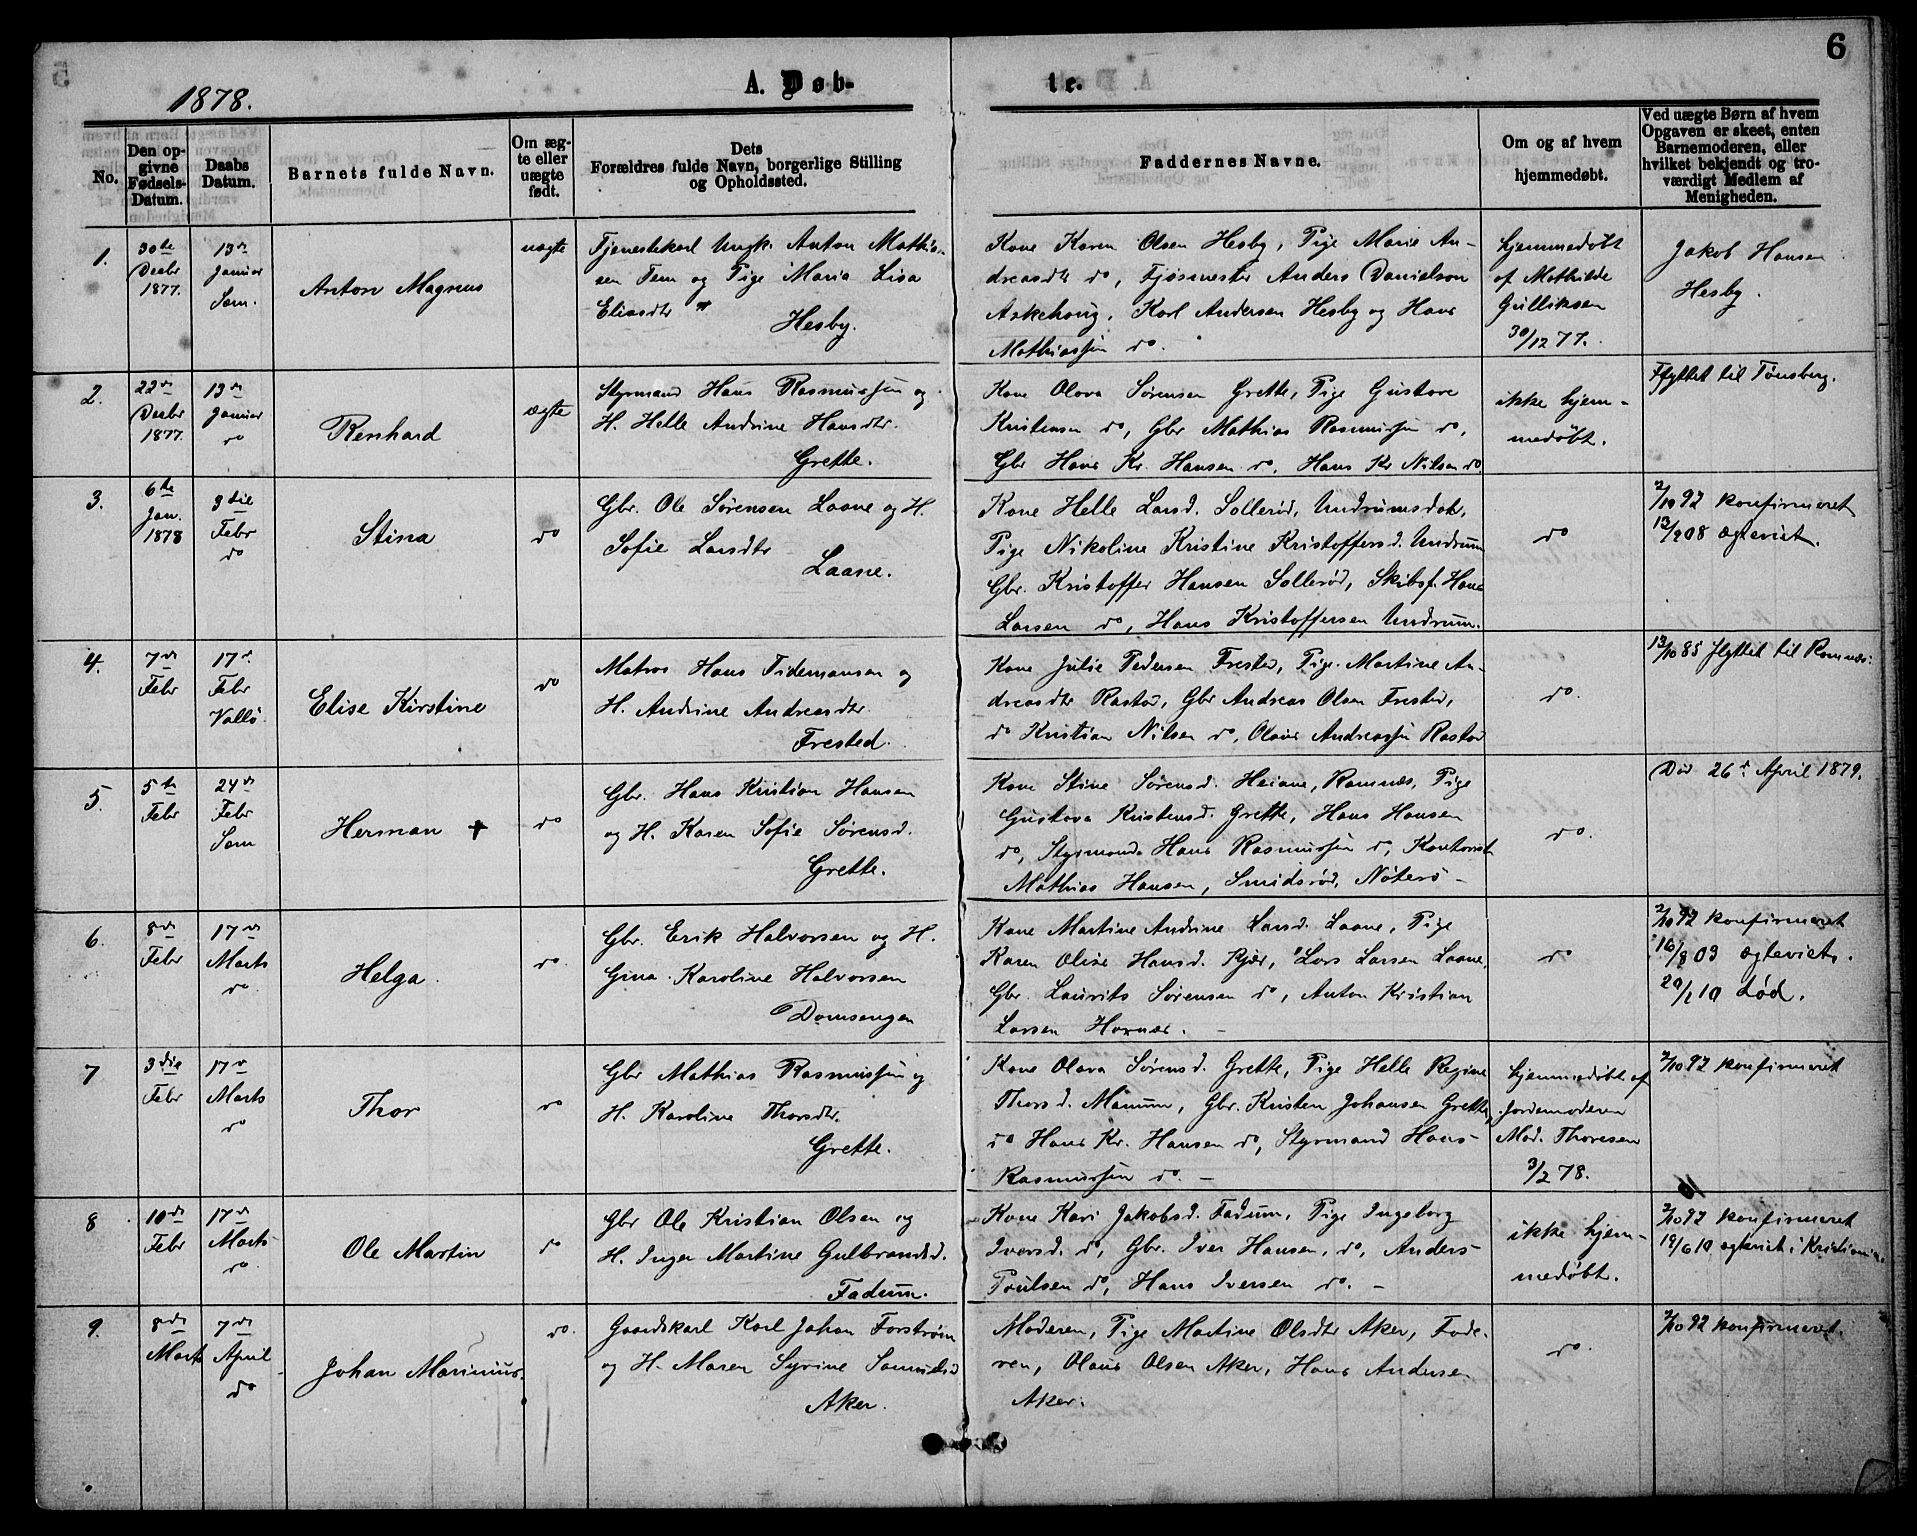 6
1878.
A. Døb-
te.
No.
Den op-
givne
Fødsels-
Datum.
Daabs
Datum.
Barnets fulde Navn.
Om æg-
te eller
uægte
født.
Dets
Forældres fulde Navn, borgerlige Stilling
og Opholdssted.
Faddernes Navne.
Om og af hvem
hjemmedøbt.
Ved uægte Børn af hvem
Opgaven er skeet, enten
Barnemoderen, eller
hvilket bekjendt og tro-
værdigt Medlem af
Menigheden.
1.
30te
Decbr
1877.
13de
Januar
Sem.
Anton Magnus
uægte
Tjenestekarl Ungk. Anton Mathia-
sen Sem og Pige Maria Lisa
Eliasdtr
Hesby.
Kone Karen Olsen Hesby, Pige Marie An-
dreasdtr do, Fjøsmester Anders Danielson
Askehoug, Karl Andersen Hesby og Hans
Mathiassen do.
hjemmedøbt
af Mathilde
Gulliksen
30/12 77.
Jakob Hansen
Hesby.
2.
22de
Decbr
1877.
13de
Januar
do
Renhard
ægte
Styrmand Hans Rasmussen og
H. Helle Andrine Hansdtr.
Grette.
Kone Olava Sørensen Grette, Pige Gustava
Kristensen do, Gbr Mathias Rasmussen do,
Gbr Hans Kr. Hansen do, Hans Kr Nilsen do
ikke hjem-
medøbt.
Flyttet til Tønsberg.
3.
6te
Jan.
1878
3die
Febr
do
Stina
do
Gbr. Ole Sørensen Laane og H.
Sofie Larsdtr
Laane.
Kone Helle Larsd. Sollerød, Undrumsdal,
Pige Nikoline Kristine Kristoffersd. Undrum
Gbr. Kristoffer Hansen Sollerød, Skibsf. Hans
Larsen do, Hans Kristoffersen Undrum.
do
2/10 92 konfirmeret
12/2 08 ægteviet.
4.
7de
Febr
17de
Febr
Vallø.
Elise Kirstine
do
Matros Hans Tidemansen og
H. Andrine Andreasdtr.
Frested.
Kone Julie Pedersen Frested, Pige Martine An-
dreasdtr Rastad, Gbr Andreas Olsen Frested,
do Kristian Nilsen do, Olaus Andreassen Rastad
do.
13/10 85 flyttet til Ramnæs.
5.
5te
Febr
24de
Febr
Sem
Herman +
do
Gbr. Hans Kristian Hansen
og H. Karen Sofie Sørensd.
Grette.
Kone Stine Sørensd. Heiane, Ramnæs, Pige
Gustava Kristensd. Grette, Hans Hansen
do, Styrmand Hans Rasmussen do, Kontorist
Mathias Hansen, Smidsrød, Nøterø -
do.
Død 26de April 1879.
6.
8de
Febr
17de
Marts
do.
Helga.
do.
Gbr. Erik Halvorsen og H.
Gina Karoline Halvorsen
Domsengen
Kone Martine Andrine Larsd. Laane, Pige
Karen Olise Hansd. Kjær, Lars Larsen Laane,
Gbr. Laurits Sørensen do, Anton Kristian
Larsen Hornæs. -
do
2/10 92 konfirmeret
16/8 03 ægteviet.
20/2 10 død.
7
3die
Febr
17de
Marts
do
Thor
do
Gbr Mathias Rasmussen og
H. Karoline Thorsdtr.
Grette.
Kone Olava Sørensd. Grette, Pige Helle Regine
Thorsd. Manum, Gbr. Kristen Johansen Grette,
do Hans Kr. Hansen do, Styrmand Hans
Rasmussen do. -
hjemmedøbt af
Jordemoderen
Mad. Thoresen
3/2 78.
2/10 92 konfirmeret
8
10de
Febr
17de
Marts
do.
Ole Martin
do
Gbr Ole Kristian Olsen og
H. Inger Martine Gulbrandsd.
Fadum.
Kone Kari Jakobsd. Fadum, Pige Ingeborg
Iversd. do, Gbr. Iver Hansen, do, Anders
Poulsen do, Hans Iversen do. -
ikke hjem-
medøbt.
2/10 92 konfirmeret
19/6 10 ægteviet i Kristiania.
9.
8de
Marts
7de
April
do
Johan Marinius.
do.
Gaardskarl Karl Johan Forstrøm
og H. Maren Syrine Samuelsd
Aker.
Moderen, Pige Martine Olsdtr Aker, Fade-
ren, Olaus Olsen Aker, Hans Andersen
Aker.
do.
2/10 92 konfirmeret.